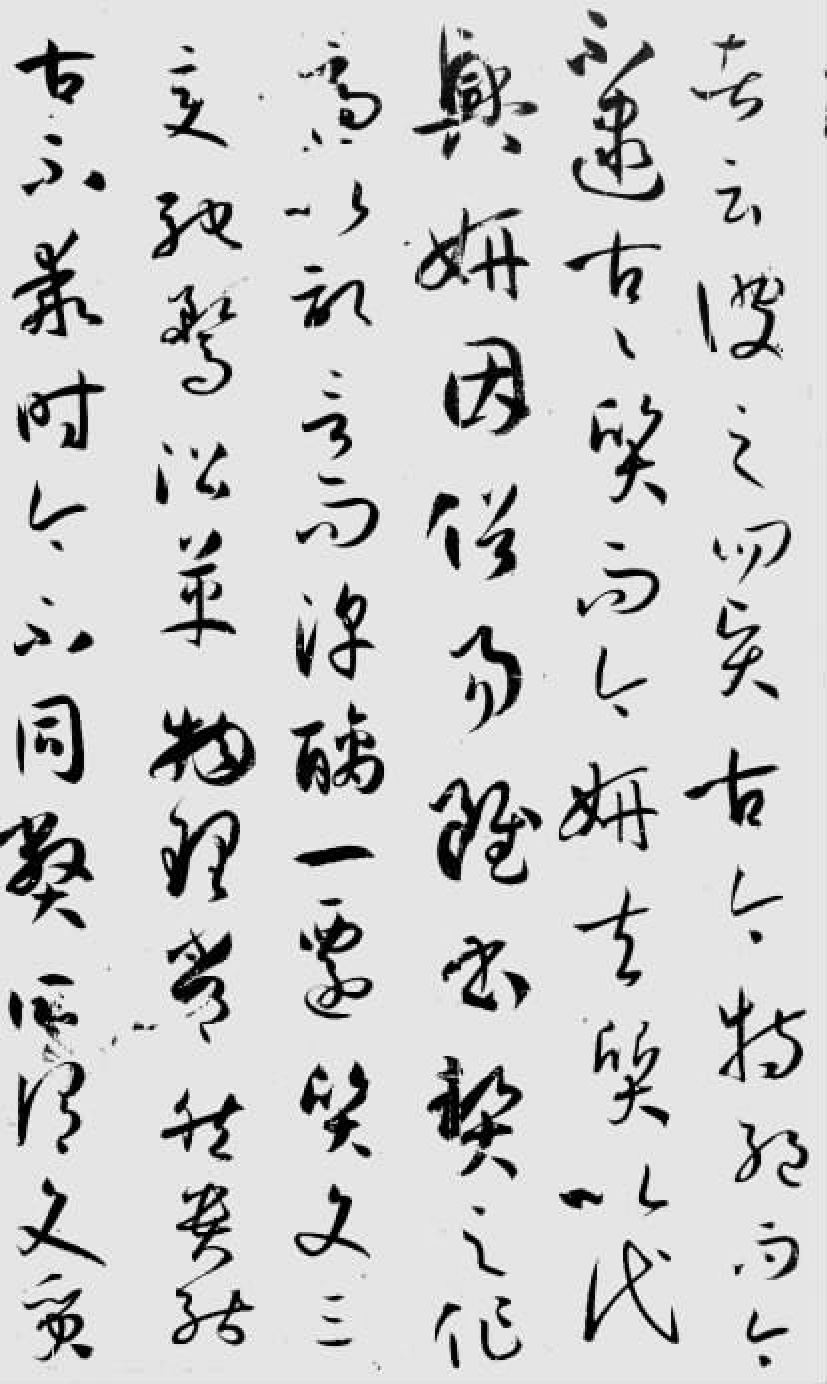 者云彼之四賢古今特絕而今
不逮古々質而今妍夫質以代
興妍因俗易雖書契之作
適以記言而淳醨一遷質文三
變馳騖沿革物理常然貴能
古不乖時今不同弊所謂文質